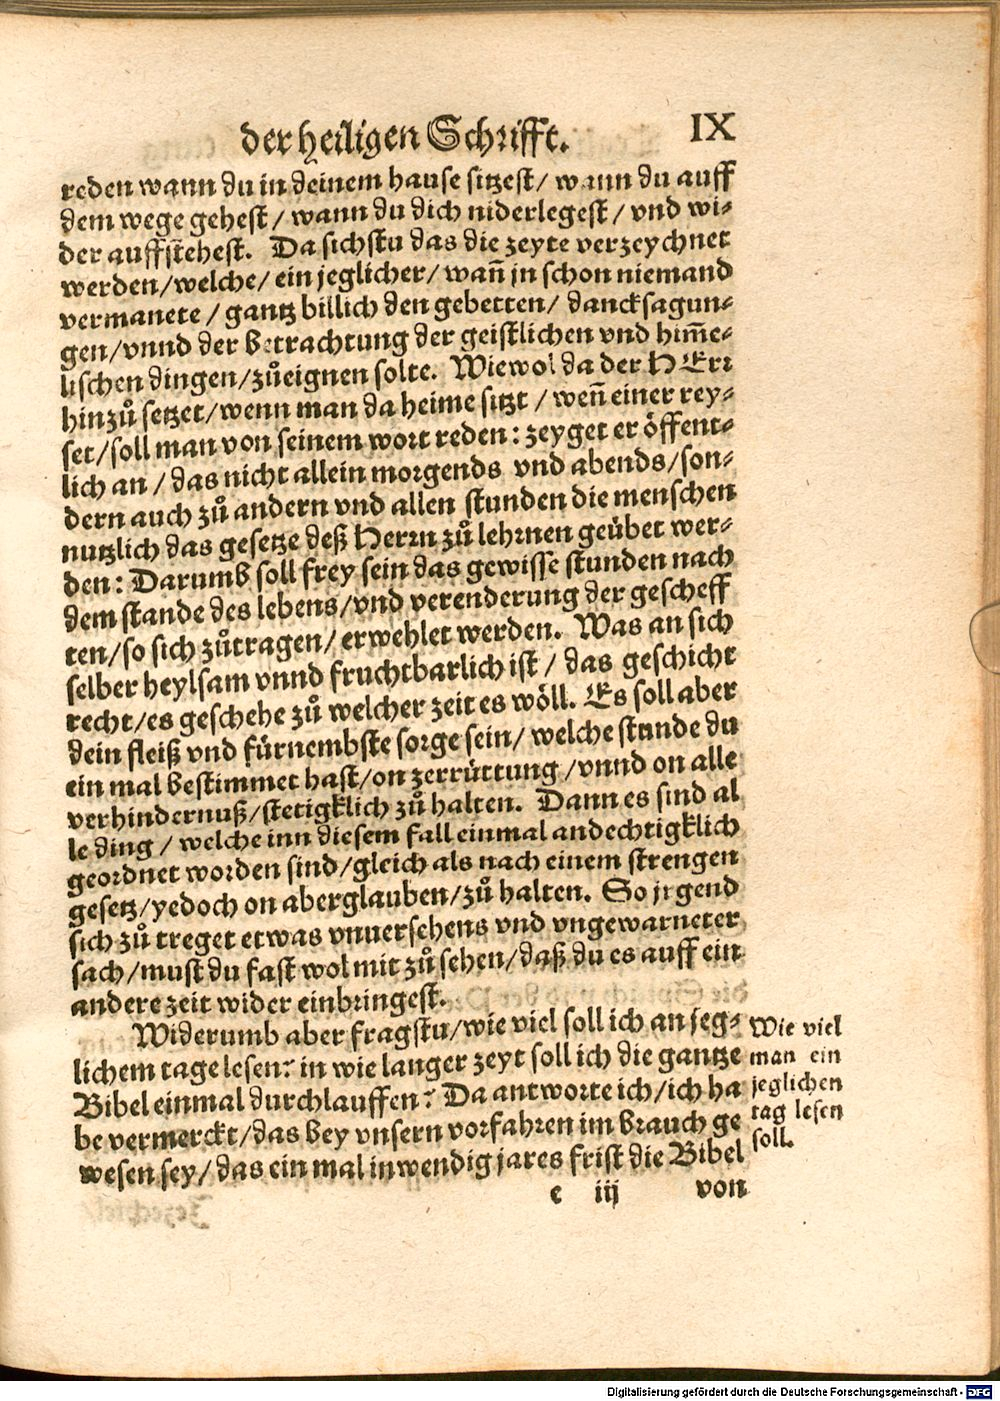 der heiligen Schrifft.
IX
reden wann du in deinem hause sitzest/ wann du auff
dem wege gehest/ wann du dich niderlegest/ vnd wi-
der auffstehest. Da sichstu das die zeyte verzeychnet
werden/welche/ ein jeglicher/ wañ jn schon niemand
vermanete/ gantz billich den gebetten/ dancksagun-
gen/vnnd der betrachtung der geistlichen vnd him̃e-
lischen dingen/zůeignen solte. Wiewol da der HErr
hinzů setzet/wenn man da heime sitzt/ weñ einer rey-
set/soll man von seinem wort reden: zeyget er öffent-
lich an/ das nicht allein morgends vnd abends/son-
dern auch zů andern vnd allen stunden die menschen
nutzlich das gesetze deß Herrn zů lehrnen geübet wer-
den: Darumb soll frey sein das gewisse stunden nach
dem stande des lebens/vnd verenderung der gescheff
ten/so sich zůtragen/ erwehlet werden. Was an sich
selber heylsam vnnd fruchtbarlich ist/ das geschicht
recht/es geschehe zů welcher zeit es wöll. Es soll aber
dein fleiß vnd fürnembste sorge sein/ welche stunde du
ein mal bestimmet hast/on zerrüttung/vnnd on alle
verhindernuß/stetigklich zů halten. Dann es sind al
le ding/ welche inn diesem fall einmal andechtigklich
geordnet worden sind/gleich als nach einem strengen
gesetz/yedoch on aberglauben/zů halten. So jrgend
sich zů treget etwas vnuersehens vnd vngewarneter
sach/must du fast wol mit zů sehen/daß du es auff ein
andere zeit wider einbringest.
Widerumb aber fragstu/wie viel soll ich an jeg-
lichem tage lesen? in wie langer zeyt soll ich die gantze
Bibel einmal durchlauffen? Da antworte ich/ich ha
be vermerckt/das bey vnsern vorfahren im brauch ge
wesen sey/das ein mal inwendig jares frist die Bibel
Wie viel
man ein
jeglichen
tag lesen
soll.
e iij
von
Digitalisierung gefördert durch die Deutsche Forschungsgemeinschaft - DFG